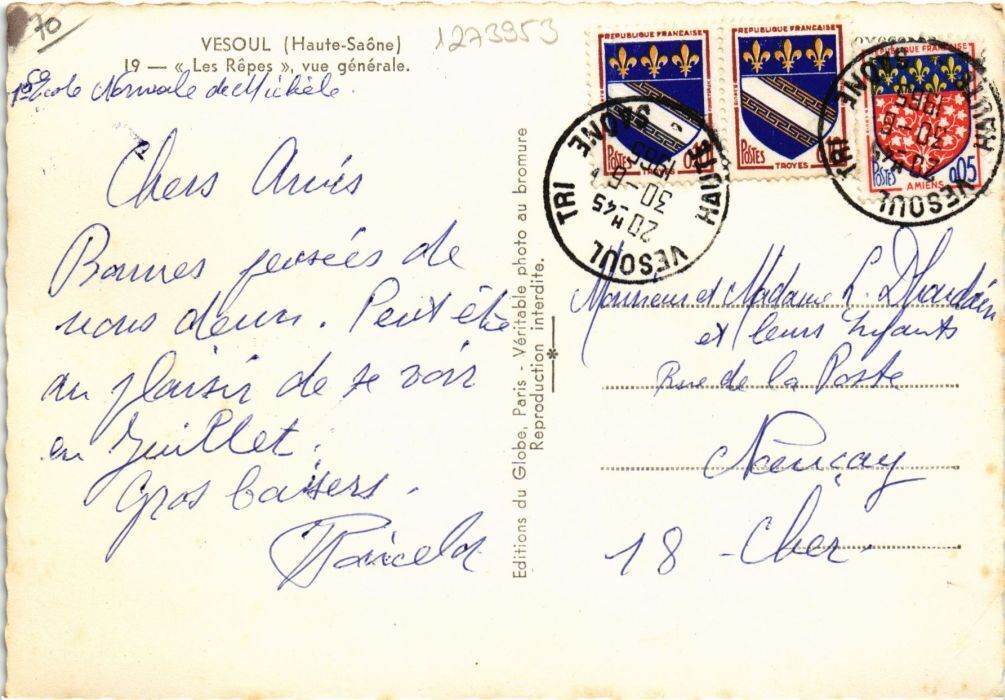 70
1273953
VESOUL (Haute-Saône)
19 — « Les Rêpes », vue générale.
Ecole Normale de Michèle.
Chers Amis
Bonnes pensées de
nous deux. Peut être
au plaisir de se voir
en Juillet.
Gros baisers.
Editions du Globe, Paris - Véritable photo au bromure
Reproduction interdite.
REPUBLIQUE FRANÇAISE
POSTES
TROYES
REPUBLIQUE FRANÇAISE
POSTES
TROYES
REPUBLIQUE FRANÇAISE
POSTES
0,05
AMIENS
VESOUL TRI
20 H 45
30-6
1965
HAUTE SAONE
VESOUL TRI
20 H 45
30-6
1965
HAUTE SAONE
Monsieur et Madame L.
et leurs Enfants
Rue de la Poste
Nançay
18 - Cher -